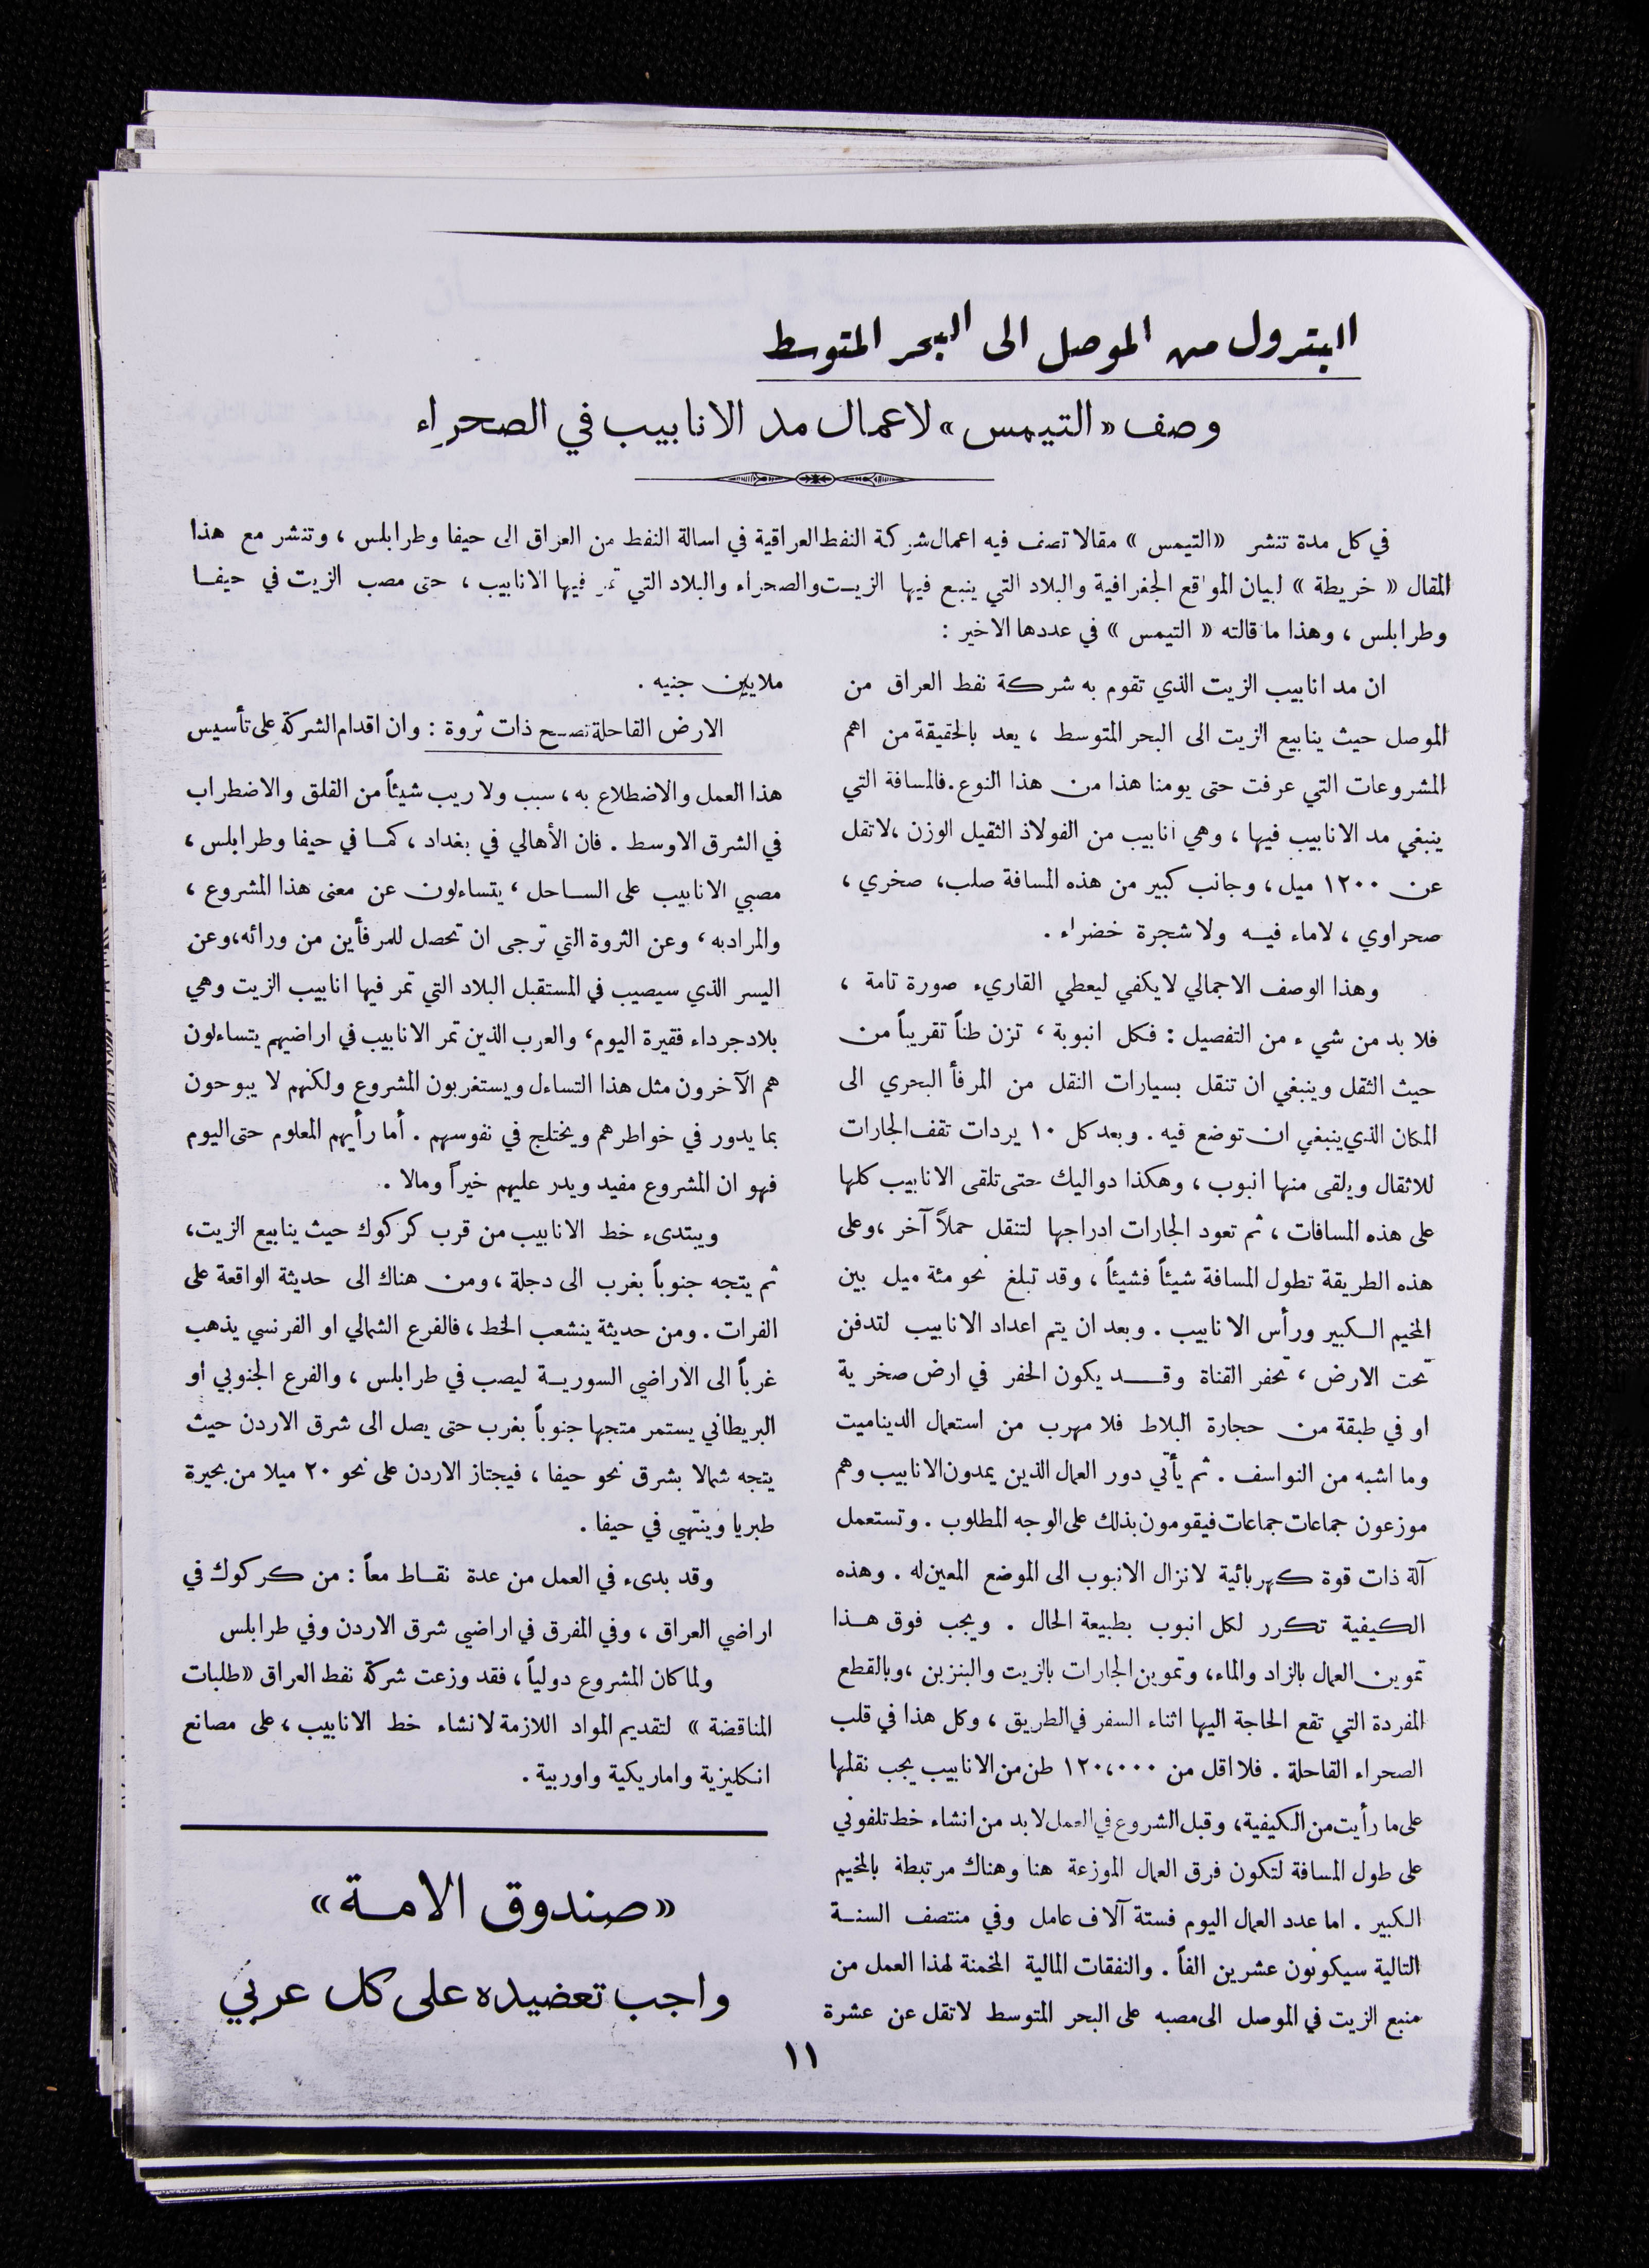 البترول من الموصل الى البحر المتوسط
وصف «التيمس» لاعمال مد الانابيب في الصحراء
في كل مدة تنشر «التيمس» مقالا تصف فيه اعمال شركة النفط العراقية في اسالة النفط من العراق الى حيفا وطرابلس ، وتنشر مع هذا
المقال « خريطة » لبيان المواقع الجغرافية والبلاد التي ينبع فيها الزيت والصحراء والبلاد التي تمر فيها الانابيب ، حتى مصب الزيت في حيفا
وطرابلس ، وهذا ما قالته « التيمس » في عددها الاخير :
ان مد انابيب الزيت الذي تقوم به شركة نفط العراق من
الموصل حيث ينابيع الزيت الى البحر المتوسط ، يعد بالحقيقة من اهم
المشروعات التي عرفت حتى يومنا هذا من هذا النوع . فالمسافة التي
ينبغي مد الانابيب فيها ، وهي انابيب من الفولاذ الثقيل الوزن ، لا تقل
عن ١٢٠٠ ميل ، وجانب كبير من هذه المسافة صلب ، صخري ،
صحراوي ، لا ماء فيه ولا شجرة خضراء .
وهذا الوصف الاجمالي لا يكفي ليعطي القاريء صورة تامة ،
فلا بد من شيء من التفصيل : فكل انبوبة ، تزن طناً تقريباً من
حيث الثقل وينبغي ان تنقل بسيارات النقل من المرفأ البحري الى
المكان الذي ينبغي ان توضع فيه . وبعد كل ١٠ يردات تقف الجارات
للاثقال ويلقى منها انبوب ، وهكذا دواليك حتى تلقى الانابيب كلها
على هذه المسافات ، ثم تعود الجارات ادراجها لتنقل حملاً آخر ، وعلى
هذه الطريقة تطول المسافة شيئاً فشيئاً ، وقد تبلغ نحو مئة ميل بين
المخيم الكبير ورأس الانابيب . وبعد ان يتم اعداد الانابيب لتدفن
تحت الارض ، تحفر القناة وقد يكون الحفر في ارض صخرية
او في طبقة من حجارة البلاط فلا مهرب من استعمال الديناميت
وما اشبه من النواسف . ثم يأتي دور العمال الذين يمدون الانابيب وهم
موزعون جماعات جماعات فيقومون بذلك على الوجه المطلوب . وتستعمل
آلة ذات قوة كهربائية لانزال الانبوب الى الموضع المعين له . وهذه
الكيفية تكرر لكل انبوب بطبيعة الحال . ويجب فوق هذا
تموين العمال بالزاد والماء ، وتموين الجارات بالزيت والبنزين ، وبالقطع
المفردة التي تقع الحاجة اليها اثناء السفر في الطريق ، وكل هذا في قلب
الصحراء القاحلة . فلا اقل من ١٢٠،٠٠٠ طن من الانابيب يجب نقلها
على ما رأيت من الكيفية ، وقبل الشروع في العمل لا بد من انشاء خط تلفوني
على طول المسافة لتكون فرق العمال الموزعة هنا وهناك مرتبطة بالمخيم
الكبير . اما عدد العمال اليوم فستة آلاف عامل وفي منتصف السنة
التالية سيكونون عشرين الفاً . والنفقات المالية المخمنة لهذا العمل من
منبع الزيت في الموصل الى مصبه على البحر المتوسط لا تقل عن عشرة
ملايين جنيه .
الارض القاحلة تصبح ذات ثروة : وان اقدام الشركة على تأسيس
هذا العمل والاضطلاع به ، سبب ولا ريب شيئاً من القلق والاضطراب
في الشرق الاوسط . فان الأهالي في بغداد ، كما في حيفا وطرابلس ،
مصبي الانابيب على الساحل ، يتساءلون عن معنى هذا المشروع ،
والمراد به ، وعن الثروة التي ترجى ان تحصل للمرفأين من ورائه ، وعن
اليسر الذي سيصيب في المستقبل البلاد التي تمر فيها انابيب الزيت وهي
بلاد جرداء فقيرة اليوم ، والعرب الذين تمر الانابيب في اراضيهم يتساءلون
هم الآخرون مثل هذا التساءل ويستغربون المشروع ولكنهم لا يبوحون
بما يدور في خواطرهم ويختلج في نفوسهم . أما رأيهم المعلوم حتى اليوم
فهو ان المشروع مفيد ويدر عليهم خيراً ومالا .
ويبتدىء خط الانابيب من قرب كركوك حيث ينابيع الزيت ،
ثم يتجه جنوباً بغرب الى دجلة ، ومن هناك الى حديثة الواقعة على
الفرات . ومن حديثة ينشعب الخط ، فالفرع الشمالي او الفرنسي يذهب
غرباً الى الاراضي السورية ليصب في طرابلس ، والفرع الجنوبي او
البريطاني يستمر متجها جنوباً بغرب حتى يصل الى شرق الاردن حيث
يتجه شمالا بشرق نحو حيفا ، فيجتاز الاردن على نحو ٢٠ ميلا من بحيرة
طبريا وينتهي في حيفا .
وقد بدىء في العمل من عدة نقاط معاً : من كركوك في
اراضي العراق ، وفي المفرق في اراضي شرق الاردن وفي طرابلس
ولما كان المشروع دولياً ، فقد وزعت شركة نفط العراق «طلبات
المناقضة » لتقديم المواد اللازمة لانشاء خط الانابيب ، على مصانع
انكليزية واماريكية واوربية .
«صندوق الامة»
واجب تعضيده على كل عربي
١١